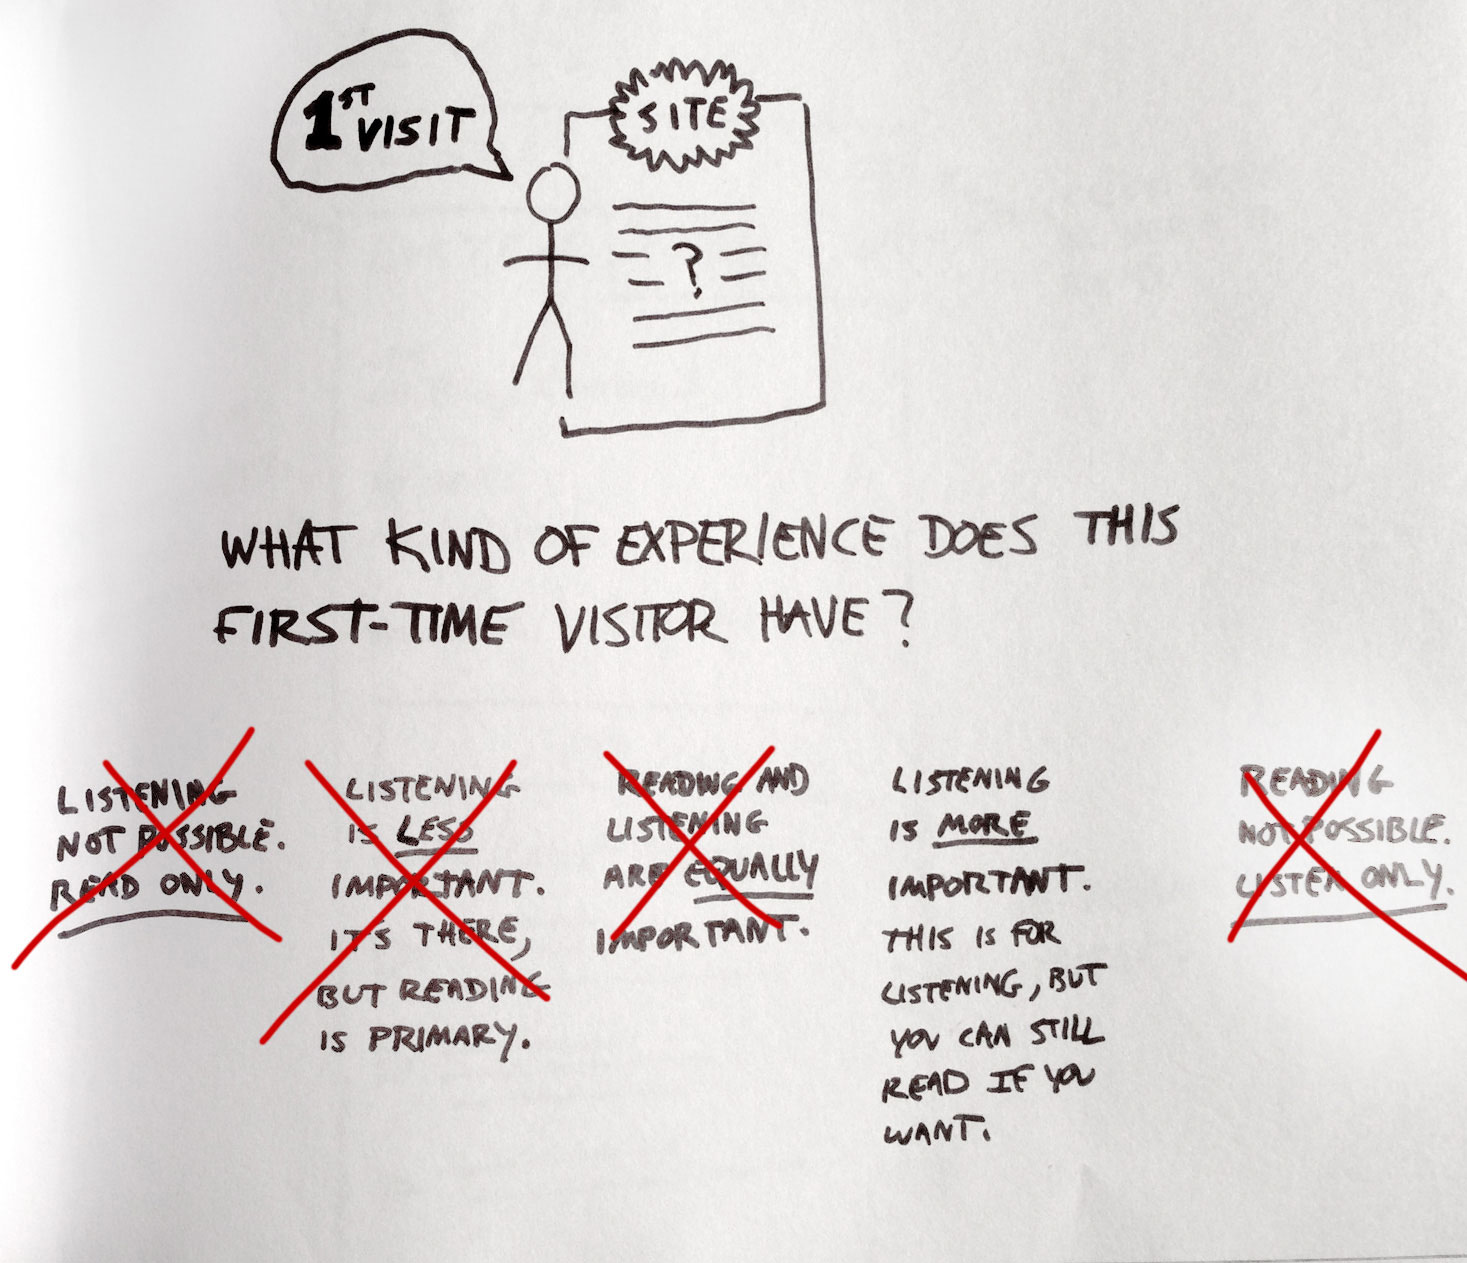 1ST VISIT
SITE
?
WHAT KIND OF EXPERIENCE DOES THIS
FIRST-TIME VISITOR HAVE?
LISTENING
NOT POSSIBLE.
READ ONLY.
LISTENING
IS LESS
IMPORTANT.
IT'S THERE,
BUT READING
IS PRIMARY.
READING AND
LISTENING
ARE EQUALLY
IMPORTANT.
LISTENING
IS MORE
IMPORTANT.
THIS IS FOR
LISTENING, BUT
YOU CAN STILL
READ IF YOU
WANT.
READING
NOT POSSIBLE.
LISTEN ONLY.